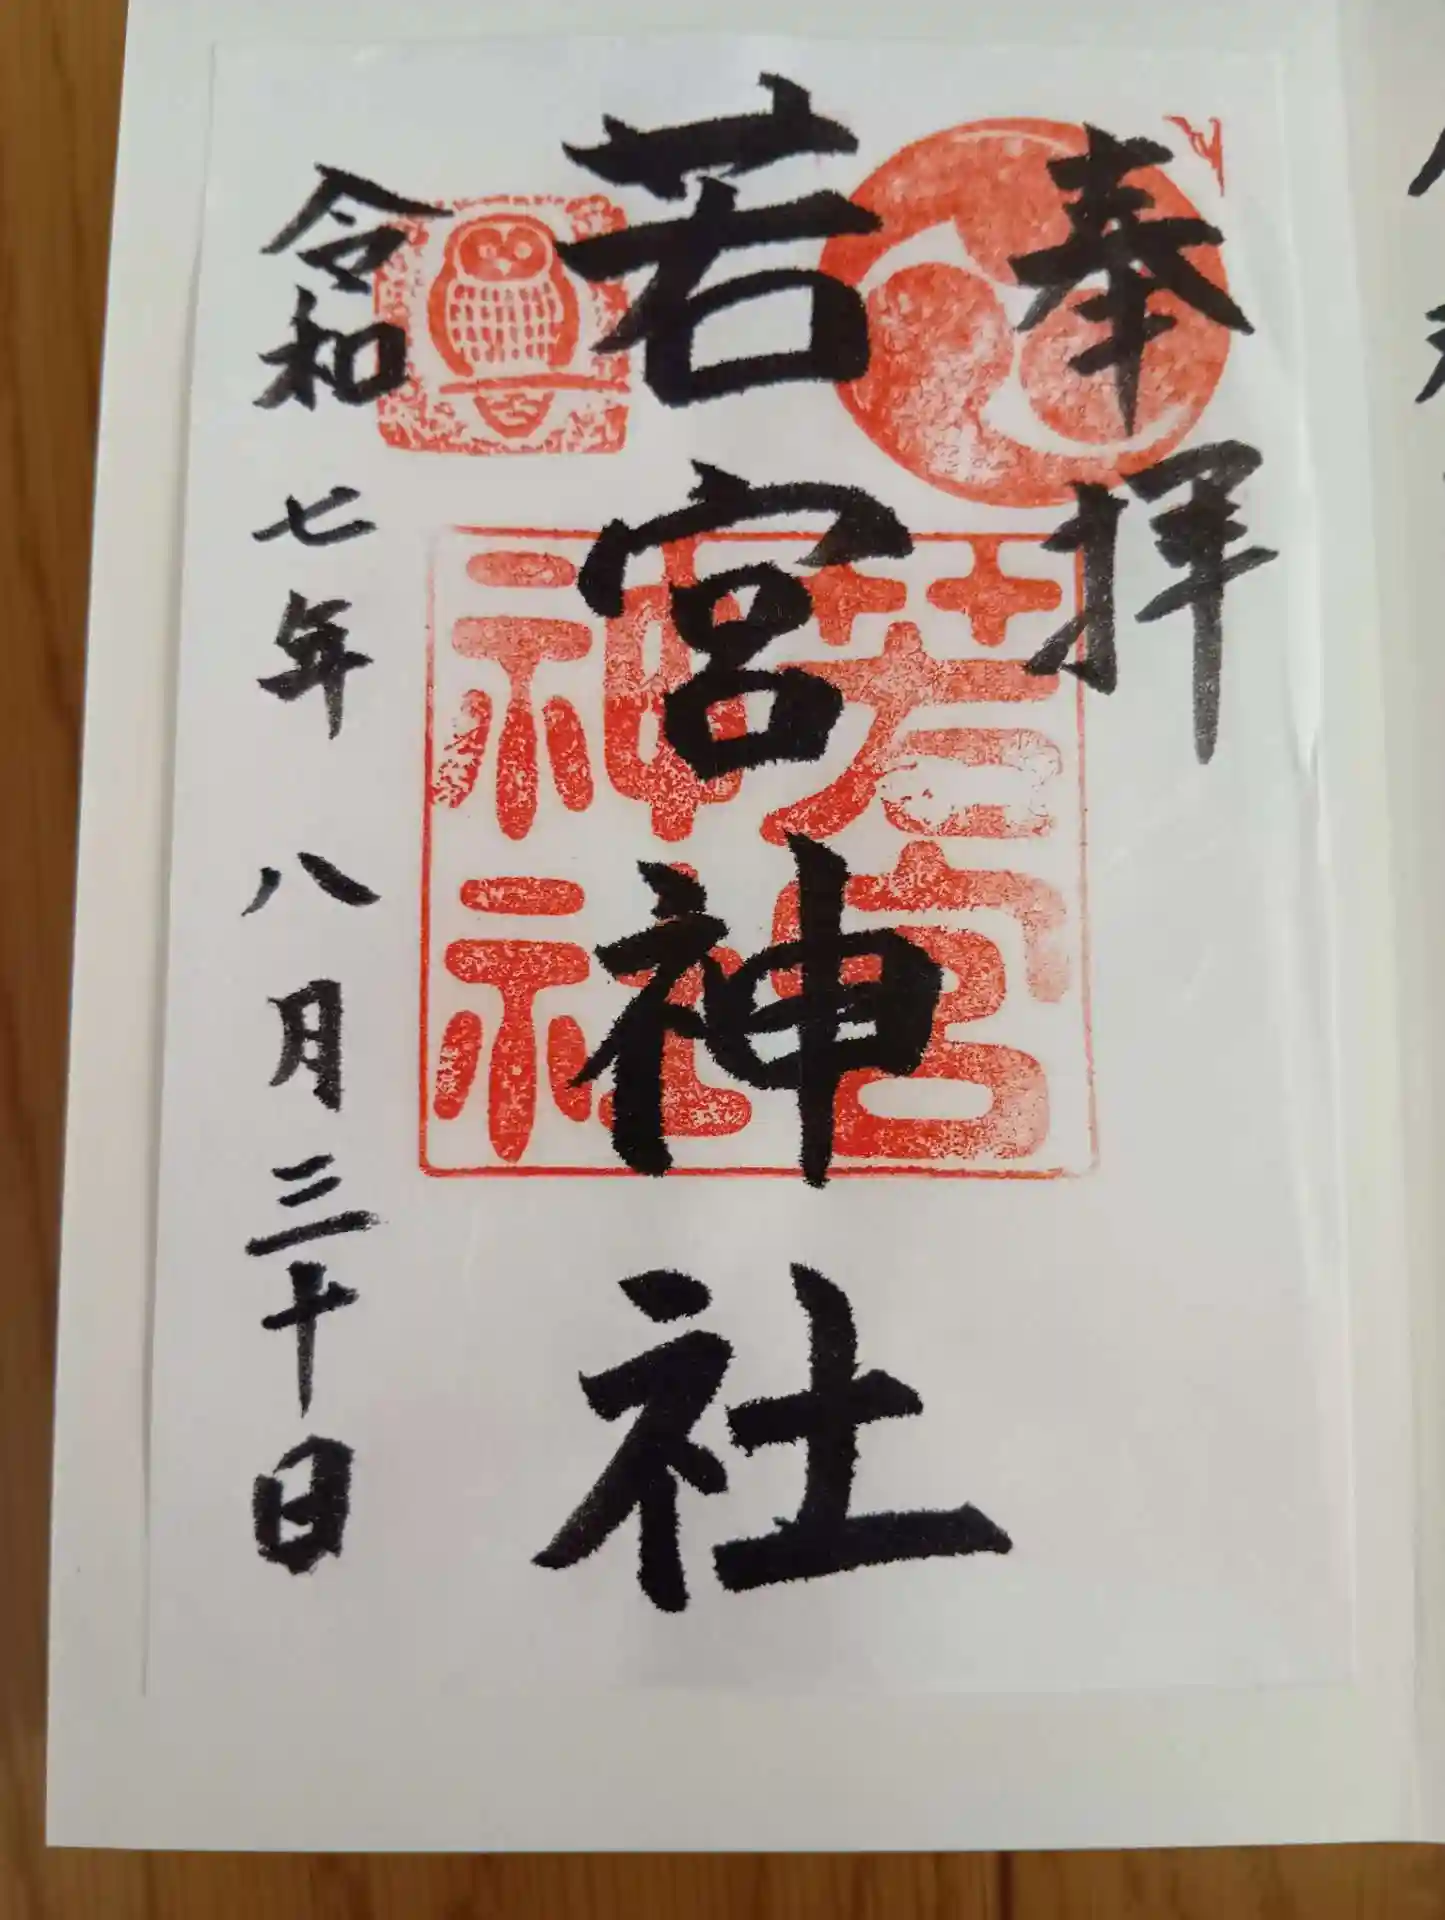 奉拝
若宮神社
若宮
神社
令和七年八月三十日